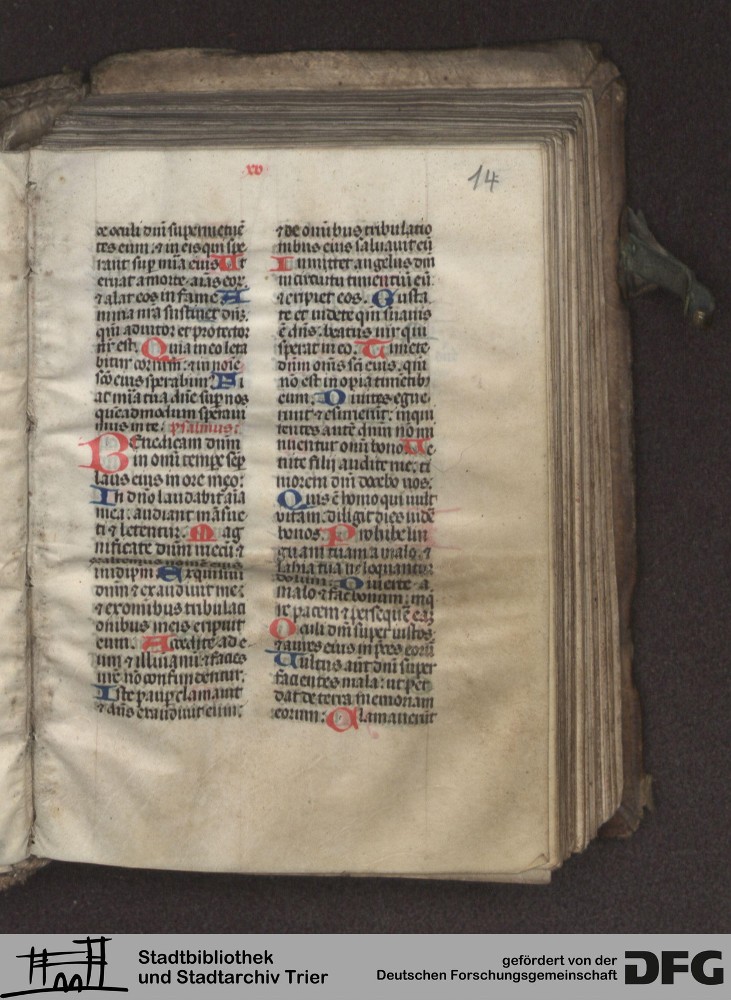 xv
14
ce oculi dñi sup metuē
tes eum: ⁊ in eis qui spe
rant sup mīa eius Ut
eruat a morte aīas eor
⁊ alat eos in fame A
nima nr̄a sustinet dn̄m
qm̄ adiutor et protector
nr̄ est. Quia in eo leta
bitur cor nrm̄: ⁊ in noīe
sc̄o eius sperabim⁹ Fi
at mīa tua dn̄e sup nos
quēadmodum speraui
mus in te. psalmus:
Benedicam dnm̄
in omī tempe semp
laus eius in ore meo:
In dn̄o laudabit aīa
mea: audiant māsue
ti ⁊ letentur. Mag
nificate dnm̄ mecū ⁊
exaltemus nomē eius
in idipm̄ Exquisiui
dnm̄ ⁊ exaudiuit me:
⁊ ex omībus tribulati
onibus meis eripuit
eum. Accedite ad e
um ⁊ illuīamī: ⁊ facies
vr̄e nō confundentur.
Iste paup clamauit
⁊ dn̄s exaudiuit eum:
⁊ de omībus tribulatio
nibus eius saluauit eū
Inmittet angelus dn̄i
in circuitu timentiū eū:
⁊ eripiet eos. Gusta
te et uidete qm̄ suauis
ē dn̄s: beatus uir qui
sperat in eo. Timete
dnm̄ om̄s sc̄i eius. qm̄
nō est inopia timentib⁹
eum. Diuites egue
runt ⁊ esurierūt: inqui
rentes autē dnm̄ nō mi
nuentur omī bono. Ve
nite filii audite me: ti
morem dnī docebo uos.
Quis ē homo qui uult
vitam. diligit dies uidē
bonos. Prohibe lin
guam tuam a malo. ⁊
labia tua ne loquantur
dolum. Diuerte a
malo ⁊ fac bonum: inq̄
re pacem ⁊ persequē eaʒ
Oculi dn̄i super iustos:
⁊ aures eius in p̄ces eorū
Uultus aūt dn̄i super
facientes mala: ut per
dat de terra memoriam
eorum: Clamauerūt
Stadtbibliothek
und Stadtarchiv Trier
gefördert von der
Deutschen Forschungsgemeinschaft
DFG